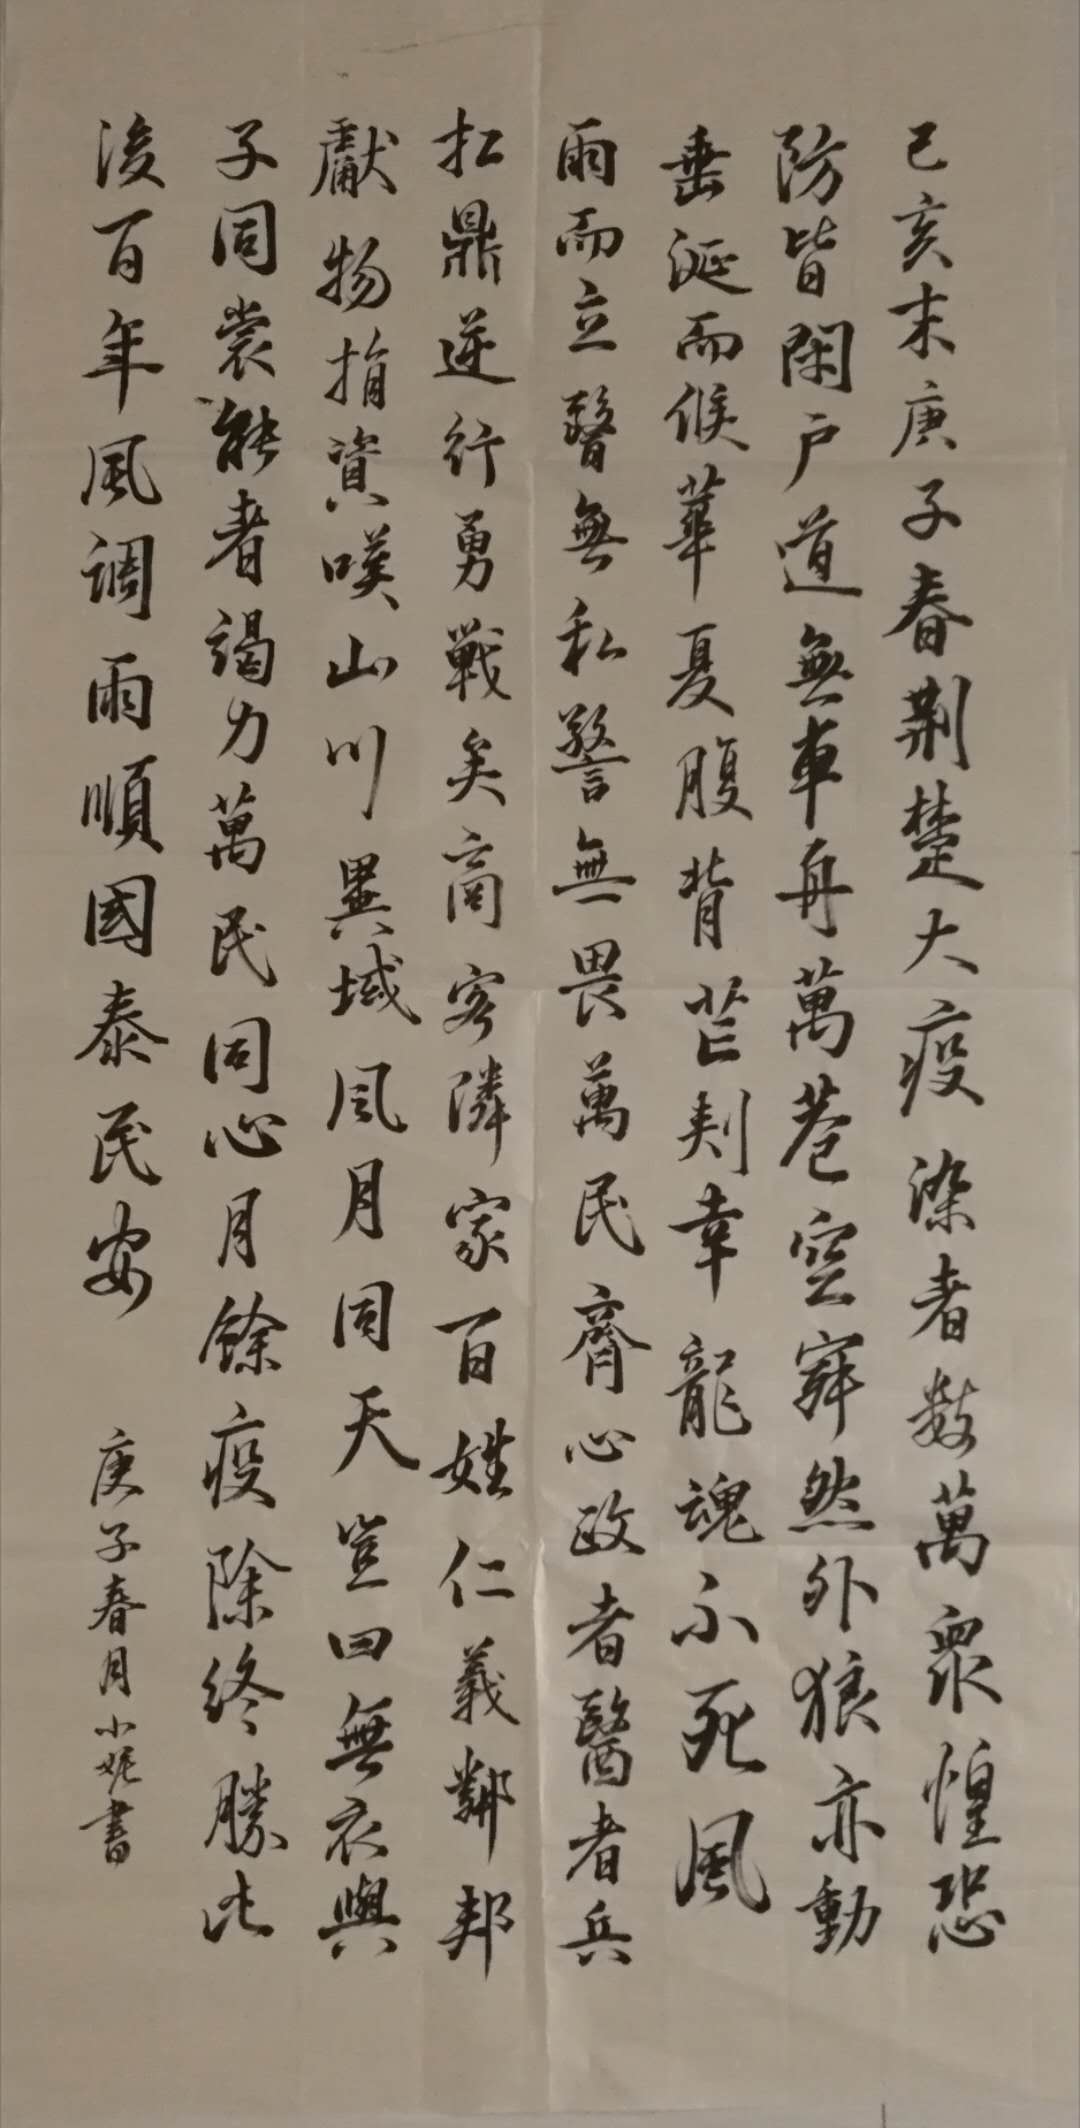 己亥末庚子春荆楚大疫染者數萬眾惶恐
防皆閑户道無車舟萬巷空寂然外狼亦動
垂涎而候華夏腹背芒刺幸龍魂不死風
雨而立醫無私警無畏萬民齊心政者醫者兵
扛鼎逆行勇戰矣商客隣家百姓仁義鄰邦
獻物捐資嘆山川異域風月同天豈曰無衣與
子同裳能者竭力萬民同心月餘疫除終勝此
後百年風調雨順國泰民安
庚子春月小妮書